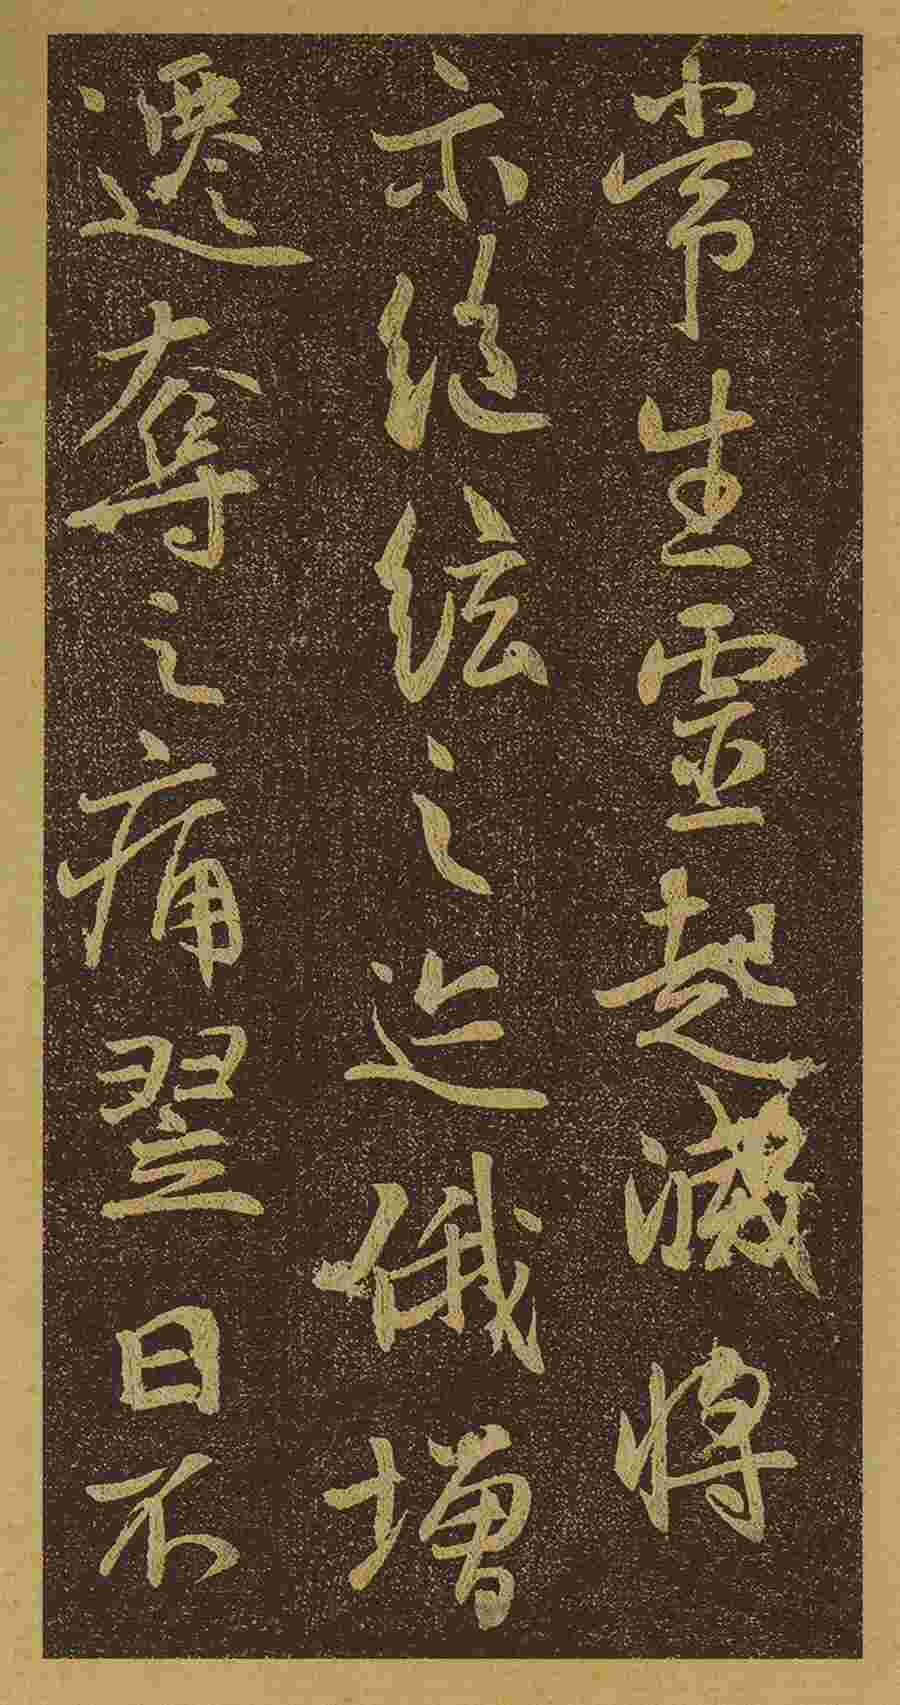 常生靈起滅將
示絕絃之迹俄增
遷奪之痛翌日不